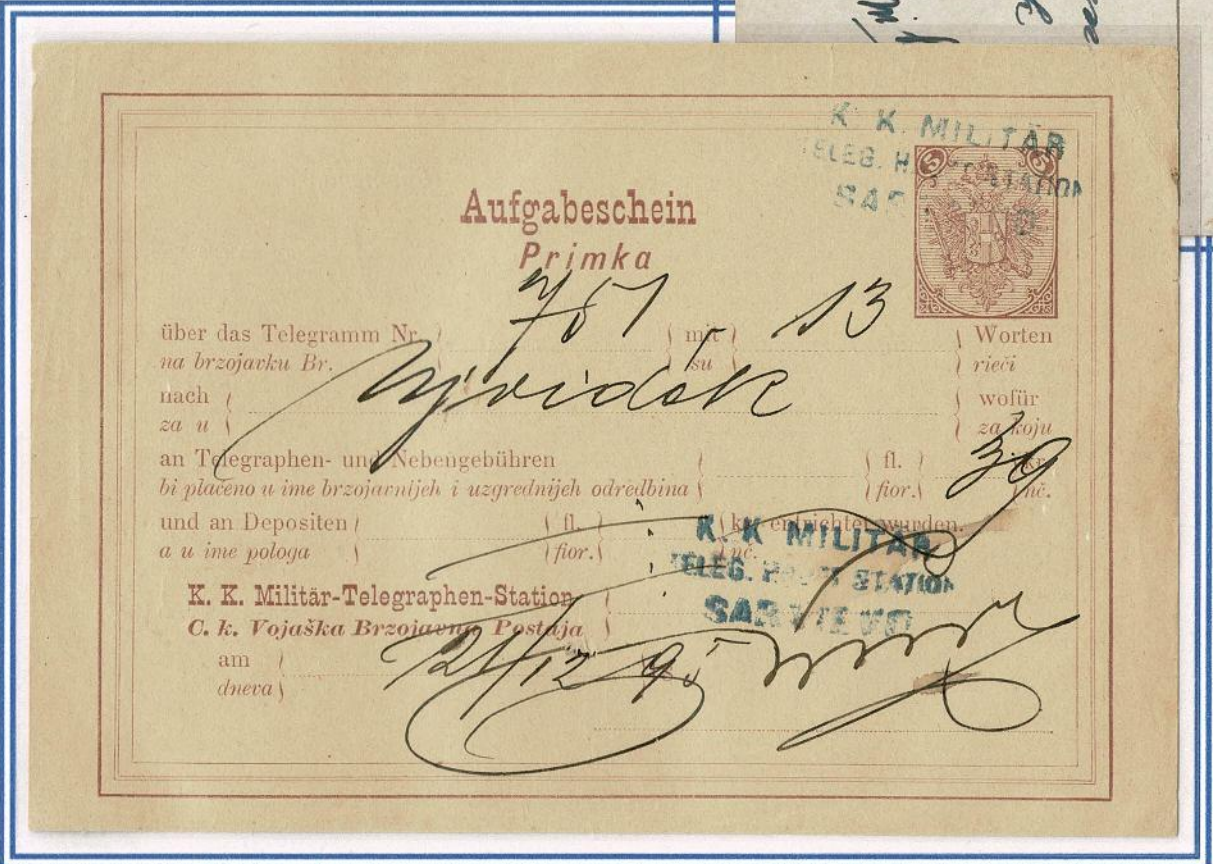 K. K. MILITÄR
TELEG. STATION
5 5
Aufgabeschein
Primka
über das Telegramm Nr. 751 mit 13 Worten
na brzojavku Br. su rieči
nach Ujvidék wofür
za u za koju
an Telegraphen- und Nebengebühren fl. 39 kr.
bi plaćeno u ime brzojavnijeh i uzgrednijeh odredbina fior. nč.
und an Depositen fl. kr. entrichtet wurden.
a u ime pologa fior. nč.
K. K. MILITÄR
TELEG. STATION
SARAJEVO
K. K. Militär-Telegraphen-Station
C. k. Vojaška Brzojavna Postaja
am 21/12 95
dneva